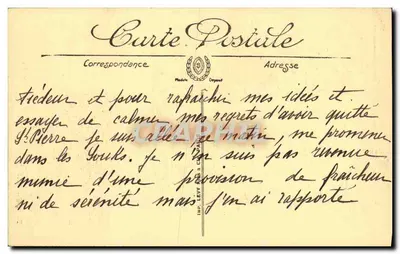 Carte Postale
Correspondance
Adresse
Modèle Déposé
tiédeur et pour rafraichir mes idées et
essayer de calmer mes regrets d'avoir quitté
St Pierre je suis allée ce matin, me promener
dans les Souks. je n'en suis pas revenue
munie d'une provision de fraîcheur
ni de sérénité mais j'en ai rapporté
IMP. LEVY